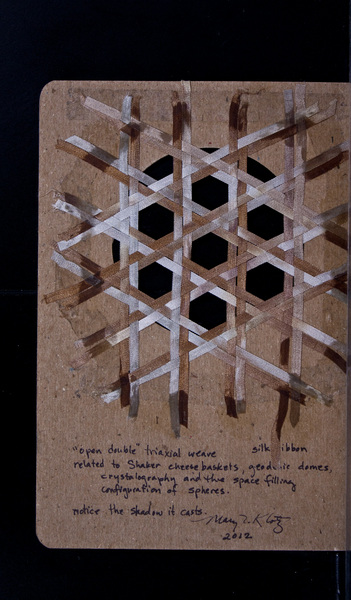 "open double" triaxial weave silk ibbon
related to Shaker cheese baskets, geodesic domes,
crystalography and the space filling
configuration of spheres.
notice the shadow it casts.
Mary Klotz
2012